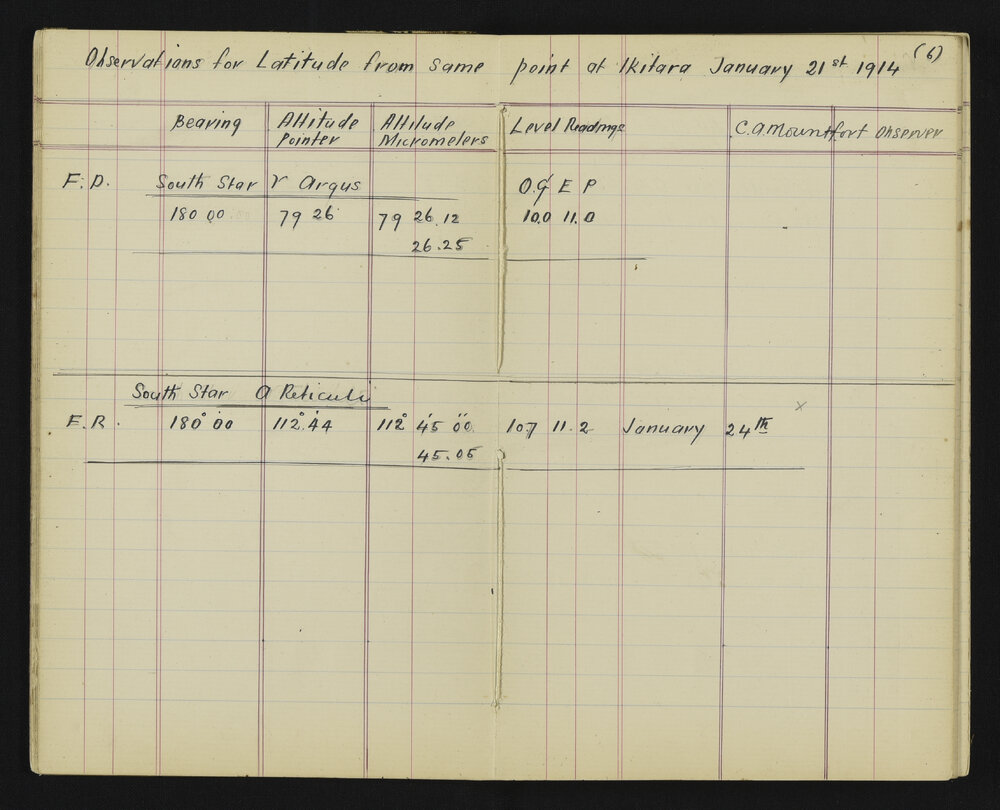 (6)
Observations for Latitude from same point at Ikitara January 21st 1914
Bearing Altitude Pointer Altitude Micrometers Level Readings C.A Mountfort Observer
F.D. South Star γ Argus O.G E P
180 00 79 26 79 26.12 10.0 11.0
26.25
South Star α Reticuli
F.R. 180° 00 112° 44' 112° 45' 00" 10.7 11.2 January 24th
45.05